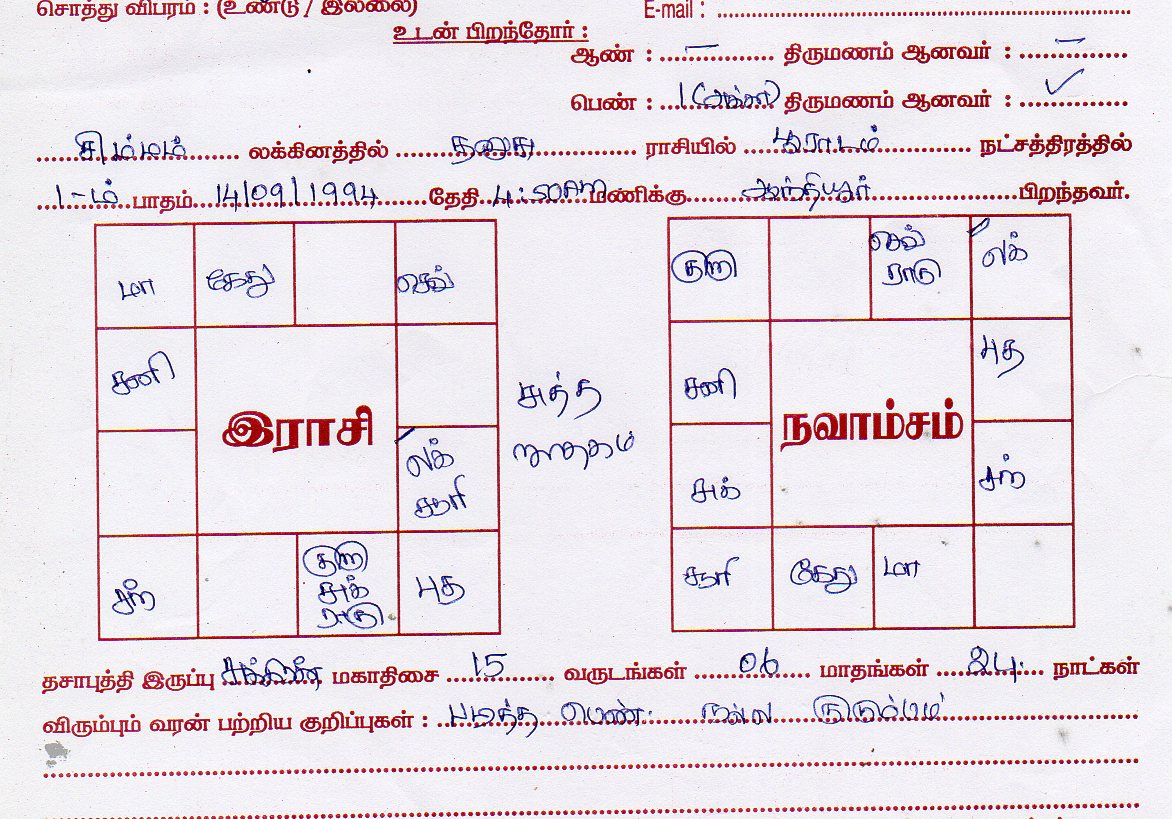 சொத்து விபரம் : (உண்டு / இல்லை) E-mail :
உடன் பிறந்தோர் :
ஆண் : – திருமணம் ஆனவர் : –
பெண் : 1 (அக்கா) திருமணம் ஆனவர் : ✓
சிம்மம் லக்கினத்தில் தனுசு ராசியில் பூராடம் நட்சத்திரத்தில்
1-ம் பாதம் 14/09/1994 தேதி 4:50AM மணிக்கு அந்தியூர் பிறந்தவர்.
மா கேது செவ்
சனி
இராசி
லக்
சூரி
சந் குரு புத
சுக்
ராகு
சுத்த
ஜாதகம்
குரு செவ் லக்
ராகு
சனி புத
நவாம்சம்
சுக் சந்
சூரி கேது மா
தசாபுத்தி இருப்பு சுக்கிரன் மகாதிசை 15 வருடங்கள் 06 மாதங்கள் 24 நாட்கள்
விரும்பும் வரன் பற்றிய குறிப்புகள் : படித்த பெண். நல்ல குடும்பம்